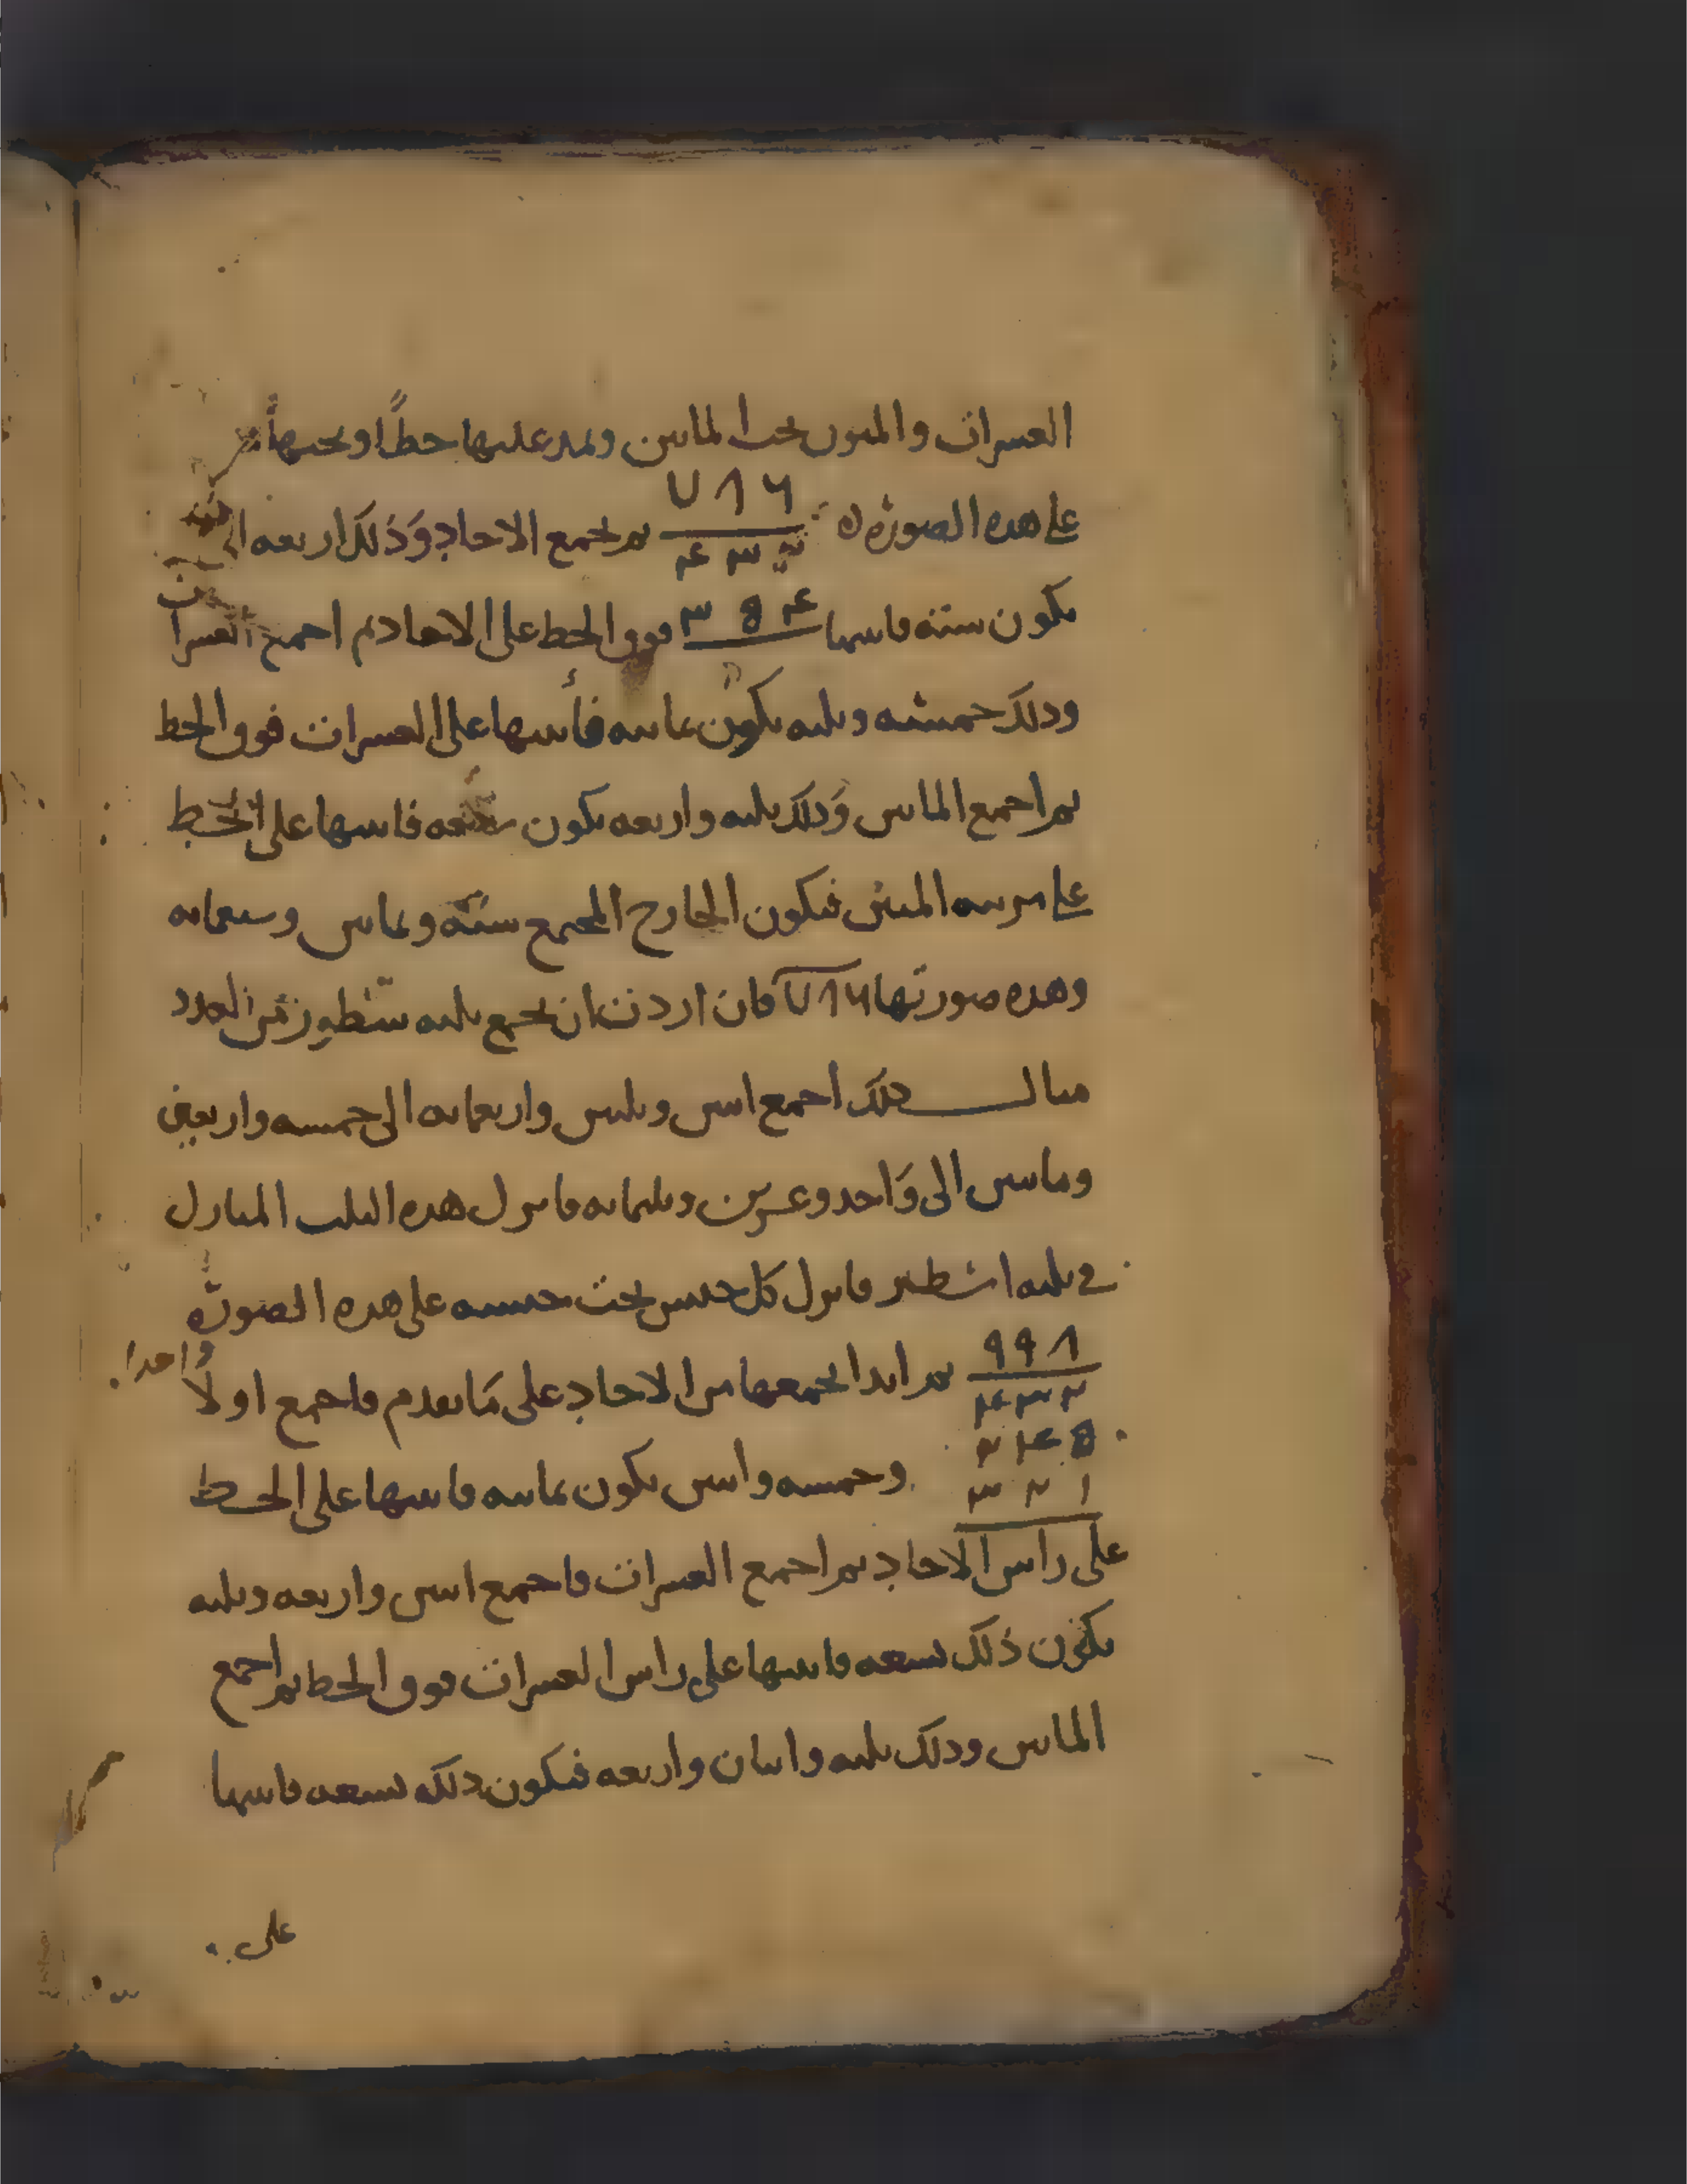 العشرات والمئون تحت المائتين ويمد عليها خطًا او تحتها
على هذه الصورة ٧٨٦ ثم تجمع الاحاد وَذلك اربعه الى
٤٣٢
يكون ستة فاثبتها ٣٥٤ فوق الخط على الاحاد ثم اجمع العشرا
وذلك خمسه وثلثه يكون ثمانيه فأثبتها على العشرات فوق الخط
ثم اجمع المائتين وَذلك ثلثه واربعه يكون سبعه فاثبتها على الخط
على مرتبه المئين فيكون الخارج المجتمع ستة وثمانين وسبعمائه
وهذه صورتها ٧٨٦ فان اردت ان تجمع ثلثه سطور من العدد
مثال ذلك اجمع اثنين وثلثين واربعمائه الى خمسه واربعين
ومائتين الى وَاحد وعشرين وثلثمائه فانزل هذه الثلث المنازل
في ثلثه اسطر فانزل كل جنس تحت جنسه على هذه الصورة
٩٩٨ ثم ابدا بجمعها من الاحاد على مَا تقدم فاجمع اولًا واحدا
٤٣٢
٢٤٥
وخمسه واثنين يكون ثمانيه فاثبتها على الخط
٣٢١
على راس الاحاد ثم اجمع العشرات فاجمع اثنين واربعه وثلثه
يكون ذلك تسعه فاثبتها على راس العشرات فوق الخط ثم اجمع
المائتين وذلك ثلثه واثنان واربعه فيكون ذلك تسعه فاثبتها
على